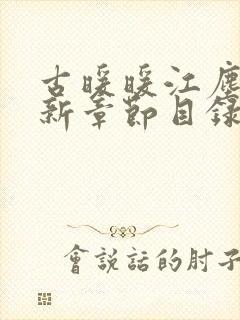 古暖暖江塵
新章節目錄
會説話的肘子